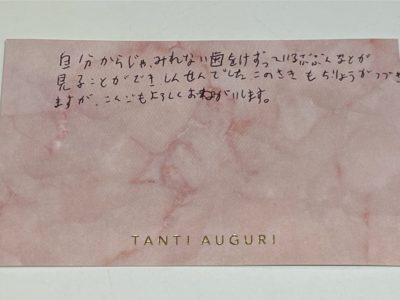 自分からじゃみれない歯をけずっているぶぶんなどが
見ることができしんせんでした このさき もちりょうがつづき
ますが、こんごもよろしくおねがいします。
TANTI AUGURI